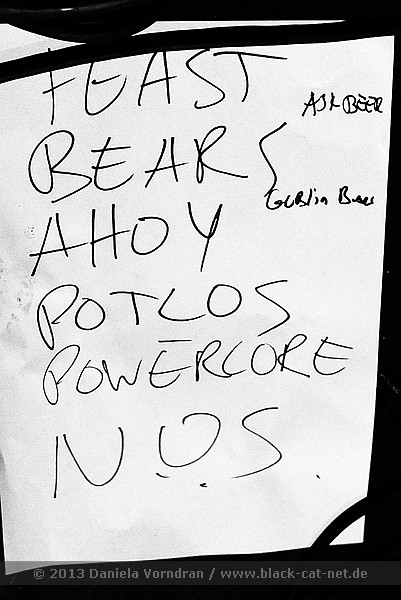 FEAST
ASK BEER
BEARS
Goblin Beer
AHOY
POTLOS
POWERCORE
N.O.S.
© 2013 Daniela Vorndran / www.black-cat-net.de